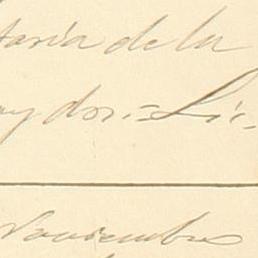 taria de la
y dos.= Li-
Noviembre